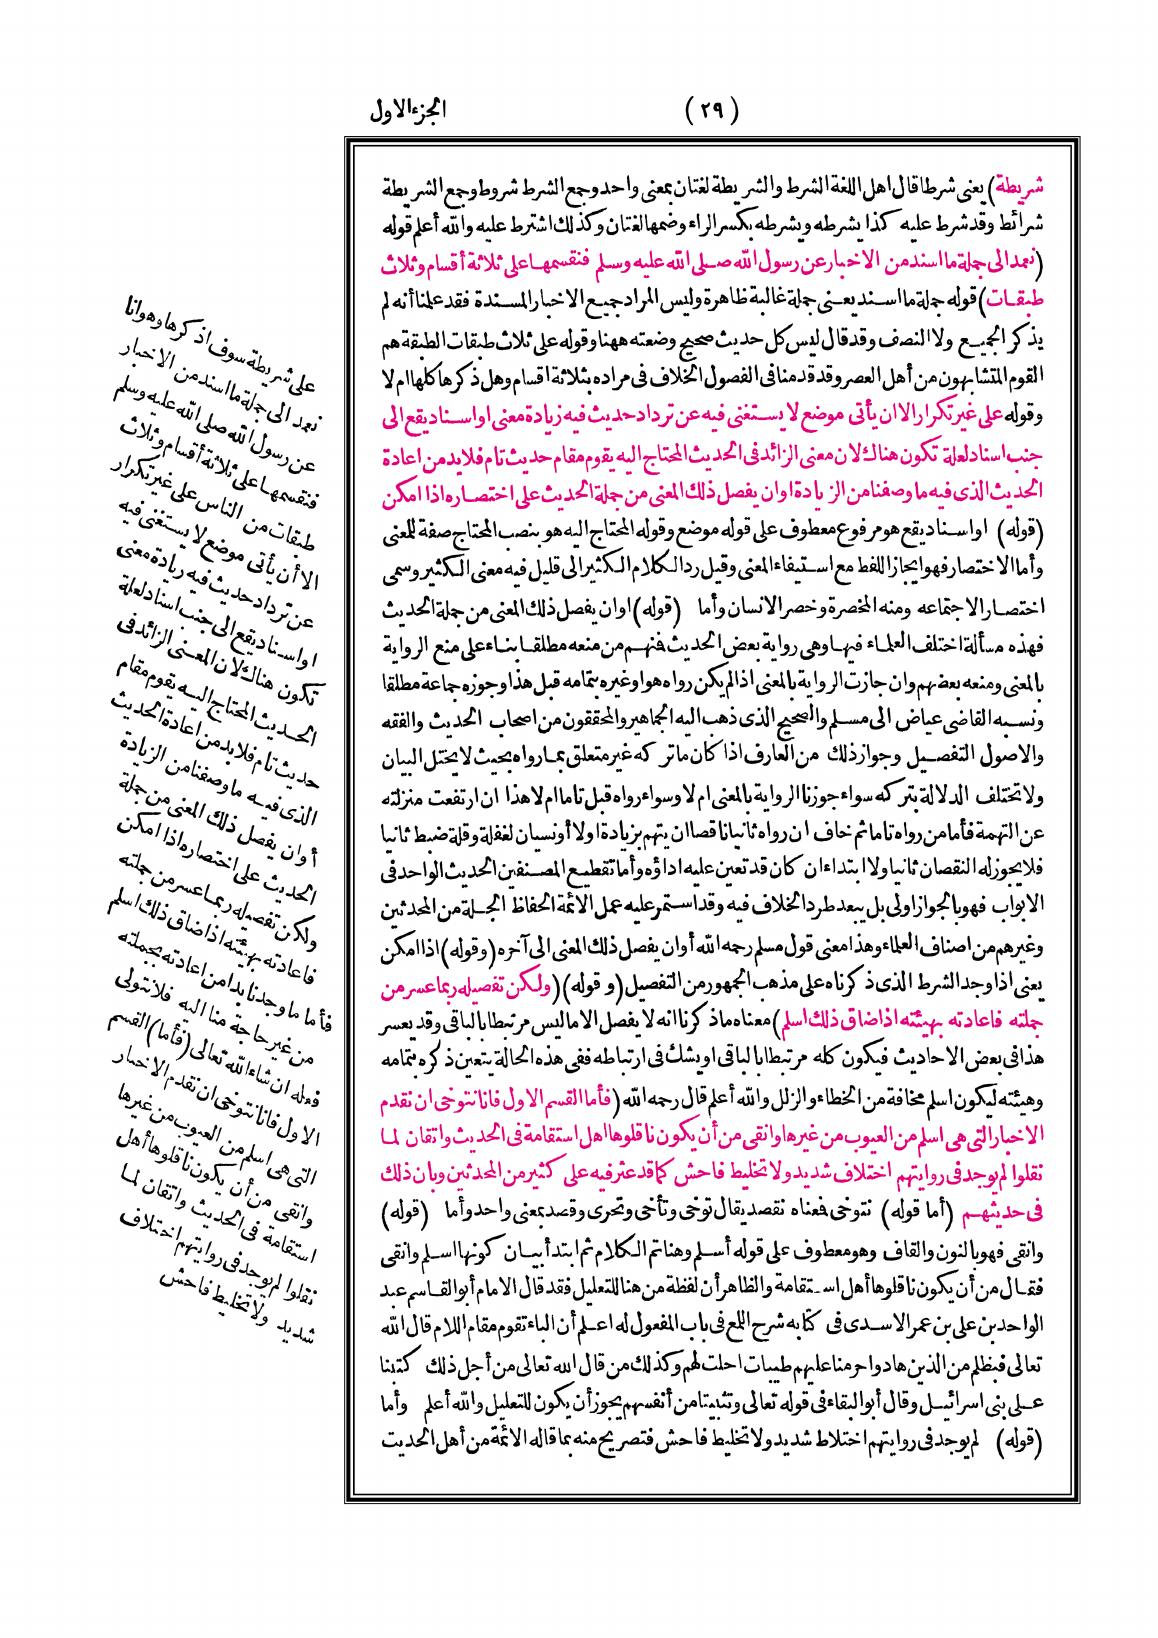 ( ٢٩ )
الجزء الاول
شريطة) يعنى شرطا قال اهل اللغة الشرط والشريطة لغتان بمعنى واحد وجمع الشرط شروط وجمع الشريطة
شرائط وقد شرط عليه كذا يشرطه ويشرطه بكسر الراء وضمها لغتان وكذلك اشترط عليه والله أعلم قوله
(نعمد الى جملة ما اسند من الاخبار عن رسول الله صلى الله عليه وسلم فنقسمها على ثلاثة أقسام وثلاث
طبقات) قوله جملة ما اسند يعنى جملة غالبة ظاهرة وليس المراد جميع الاخبار المسندة فقد علمنا أنه لم
يذكر الجميع ولا النصف وقد قال ليس كل حديث صحيح وضعته ههنا وقوله على ثلاث طبقات الطبقة هم
القوم المتشابهون من أهل العصر وقد قدمنا فى الفصول الخلاف فى مراده بثلاثة اقسام وهل ذكرها كلها ام لا
وقوله على غير تكرار الا ان يأتى موضع لا يستغنى فيه عن ترداد حديث فيه زيادة معنى او اسناد يقع الى
جنب اسناد لعلة تكون هناك لان معنى الزائد فى الحديث المحتاج اليه يقوم مقام حديث تام فلا بد من اعادة
الحديث الذى فيه ما وصفنا من الزيادة او ان يفصل ذلك المعنى من جملة الحديث على اختصاره اذا امكن
(قوله) او اسناد يقع هو مرفوع معطوف على قوله موضع وقوله المحتاج اليه هو بنصب المحتاج صفة للمعنى
وأما الاختصار فهو ايجاز اللفظ مع استيفاء المعنى وقيل رد الكلام الكثير الى قليل فيه معنى الكثير وسمى
اختصارا لاجتماعه ومنه المخصرة وخصر الانسان وأما (قوله) او ان يفصل ذلك المعنى من جملة الحديث
فهذه مسألة اختلف العلماء فيها وهى رواية بعض الحديث فمنهم من منعه مطلقا بناء على منع الرواية
بالمعنى ومنعه بعضهم وان جازت الرواية بالمعنى اذا لم يكن رواه هو او غيره بتمامه قبل هذا وجوزه جماعة مطلقا
ونسبه القاضى عياض الى مسلم والصحيح الذى ذهب اليه الجماهير والمحققون من اصحاب الحديث والفقه
والاصول التفصيل وجواز ذلك من العارف اذا كان ما تركه غير متعلق بما رواه بحيث لا يختل البيان
ولا تختلف الدلالة بتركه سواء جوزنا الرواية بالمعنى ام لا وسواء رواه قبل تاما ام لا هذا ان ارتفعت منزلته
عن التهمة فأما من رواه تاما ثم خاف ان رواه ثانيا ناقصا ان يتهم بزيادة اولا أو نسيان لغفلة وقلة ضبط ثانيا
فلا يجوز له النقصان ثانيا ولا ابتداء ان كان قد تعين عليه اداؤه وأما تقطيع المصنفين الحديث الواحد فى
الابواب فهو بالجواز اولى بل يبعد طرد الخلاف فيه وقد استمر عليه عمل الائمة الحفاظ الجلة من المحدثين
وغيرهم من اصناف العلماء وهذا معنى قول مسلم رحمه الله أو ان يفصل ذلك المعنى الى آخره (وقوله) اذا امكن
يعنى اذا وجد الشرط الذى ذكرناه على مذهب الجمهور من التفصيل (وقوله) (ولكن تفصيله ربما عسر من
جملته فاعادته بهيئته اذا ضاق ذلك اسلم) معناه ما ذكرنا انه لا يفصل الا ما ليس مرتبطا بالباقى وقد يعسر
هذا فى بعض الاحاديث فيكون كله مرتبطا بالباقى او يشك فى ارتباطه ففى هذه الحالة يتعين ذكره بتمامه
وهيئته ليكون اسلم مخافة من الخطاء والزلل والله أعلم قال رحمه الله (فأما القسم الاول فانا نتوخى ان نقدم
الاخبار التى هى اسلم من العيوب من غيرها وانقى من أن يكون ناقلوها اهل استقامة فى الحديث واتقان لما
نقلوا لم يوجد فى روايتهم اختلاف شديد ولا تخليط فاحش كما قد عثر فيه على كثير من المحدثين وبان ذلك
فى حديثهم (أما قوله) نتوخى فمعناه نقصد يقال توخى وتأخى وتحرى وقصد بمعنى واحد وأما (قوله)
وانقى فهو بالنون والقاف وهو معطوف على قوله أسلم وهنا تم الكلام ثم ابتدأ بيان كونها اسلم وانقى
فقال من أن يكون ناقلوها أهل استقامة والظاهر أن لفظة من هنا للتعليل فقد قال الامام أبو القاسم عبد
الواحد بن على بن عمر الاسدى فى كتابه شرح اللمع فى باب المفعول له اعلم أن الباء تقوم مقام اللام قال الله
تعالى فبظلم من الذين هادوا حرمنا عليهم طيبات احلت لهم وكذلك من قال الله تعالى من أجل ذلك كتبنا
على بنى اسرائيل وقال أبو البقاء فى قوله تعالى وتثبيتا من أنفسهم يجوز أن يكون للتعليل والله أعلم وأما
(قوله) لم يوجد فى روايتهم اختلاط شديد ولا تخليط فاحش فتصريح منه بما قاله الائمة من أهل الحديث
على شريطة سوف اذكرها وهو انا
نعمد الى جملة ما اسند من الاخبار
عن رسول الله صلى الله عليه وسلم
فنقسمها على ثلاثة أقسام وثلاث
طبقات من الناس على غير تكرار
الا أن يأتى موضع لا يستغنى فيه
عن ترداد حديث فيه زيادة معنى
او اسناد يقع الى جنب اسناد لعلة
تكون هناك لان المعنى الزائد فى
الحديث المحتاج اليه يقوم مقام
حديث تام فلا بد من اعادة الحديث
الذى فيه ما وصفنا من الزيادة
أو ان يفصل ذلك المعنى من جملة
الحديث على اختصاره اذا امكن
ولكن تفصيله ربما عسر من جملته
فاعادته بهيئته اذا ضاق ذلك اسلم
فأما ما وجدنا بدا من اعادته بجملته
من غير حاجة منا اليه فلا نتولى
فعله ان شاء الله تعالى (فأما) القسم
الاول فانا نتوخى ان نقدم الاخبار
التى هى اسلم من العيوب من غيرها
وانقى من أن يكون ناقلوها أهل
استقامة فى الحديث واتقان لما
نقلوا لم يوجد فى روايتهم اختلاف
شديد ولا تخليط فاحش